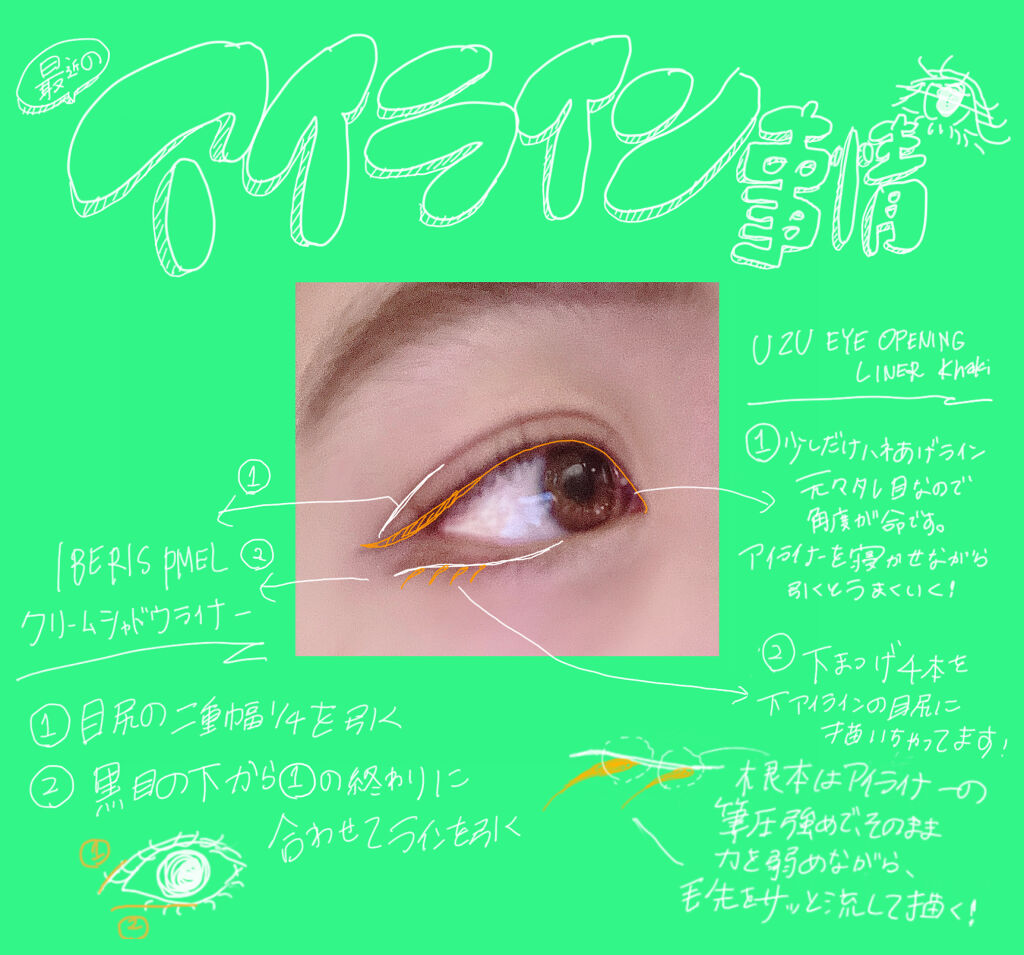 最近の
アイライン事情
UZU EYE OPENING
LINER Khaki
① 少しだけハネあげライン
元々タレ目なので
角度が命です。
アイライナーを寝かせながら
引くとうまくいく!
② 下まつげ4本を
下アイラインの目尻に
描いちゃってます!
根本はアイライナーの
筆圧強めで、そのまま
力を弱めながら、
毛先をサッと流して描く!
①
②
IBERIS PMEL
クリームシャドウライナー
① 目尻の二重幅1/4を引く
② 黒目の下から①の終わりに
合わせてラインを引く
①
②